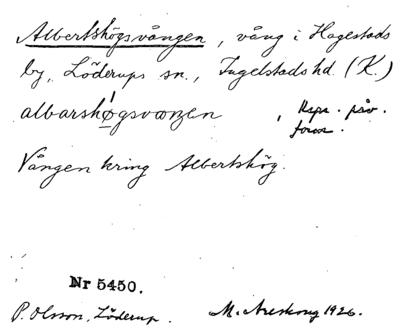 Albertshögsvången, vång i Hagestads
by, Löderups sn., Ingelstads hd. (K.)
albarshøgsvɑŋen, Uspr. påv.
foros.
Vången kring Albertshög.
Nr 5450.
P. Olsson, Löderup. M. Areskoug 1926.